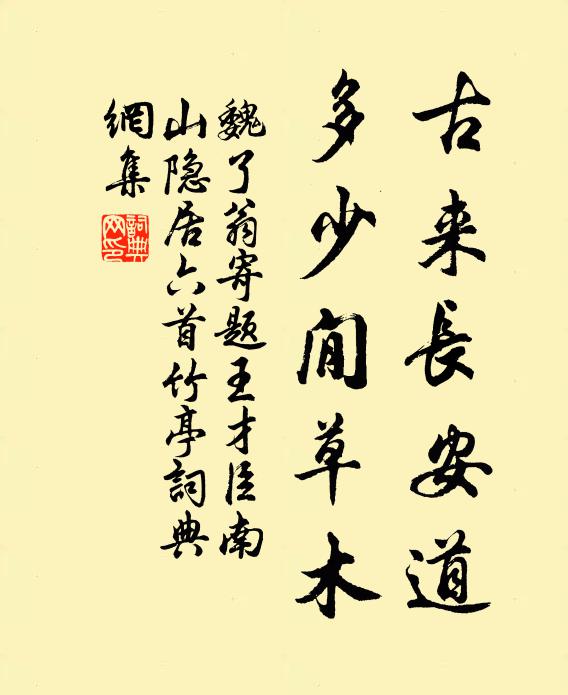 古来長安道
多少閒草木
魏了翁寄題王才臣南
山隐居六首竹亭詞典
網集
詞典
网印